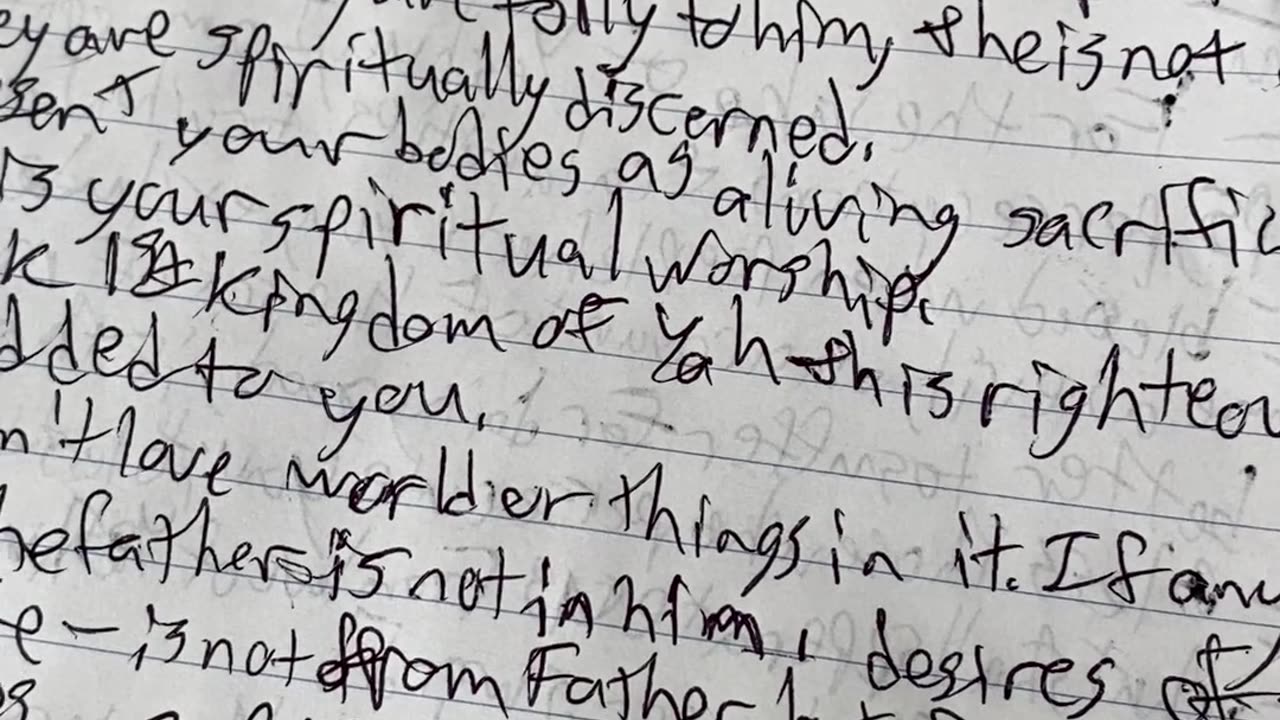 folly to him, & he is not
ey are spiritually discerned.
sent your bodies as a living sacrific
is your spiritual worship.
k 1st kingdom of Yah & his righteou
dded to you.
n't love world or things in it. If any
hefather is not in him,
e - is not from Father desires of